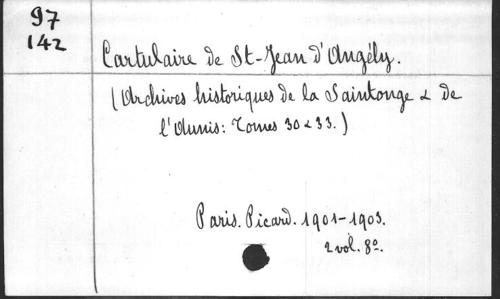 97
142
Cartulaire de St-Jean d'Angély.
(Archives historiques de la Saintonge & de
l'Aunis: Tomes 30 & 33.)
Paris. Picard. 1901-1903.
2 vol. 8º.